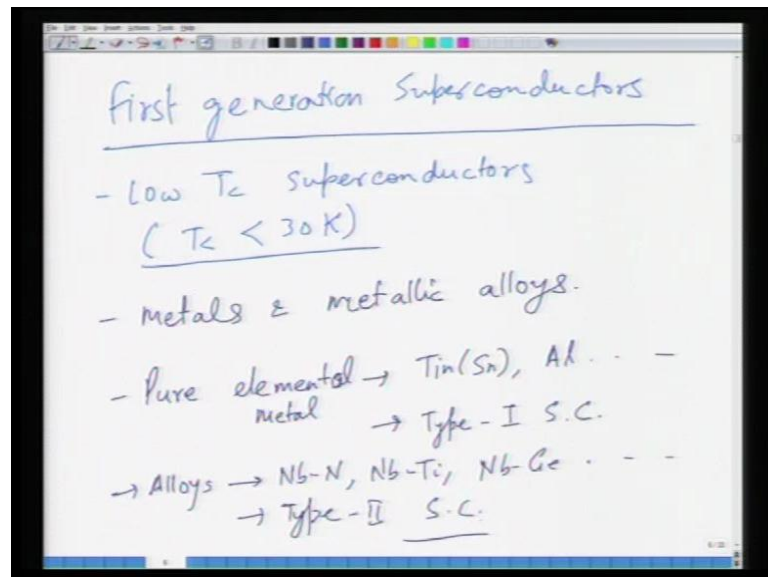 first generation Superconductors
- Low Tc superconductors
( Tc < 30K)
- metals & metallic alloys.
- Pure elemental → Tin(Sn), Al . . -
metal → Type-I S.C.
→ Alloys → Nb-N, Nb-Ti, Nb-Ge . - -
→ Type-II S.C.